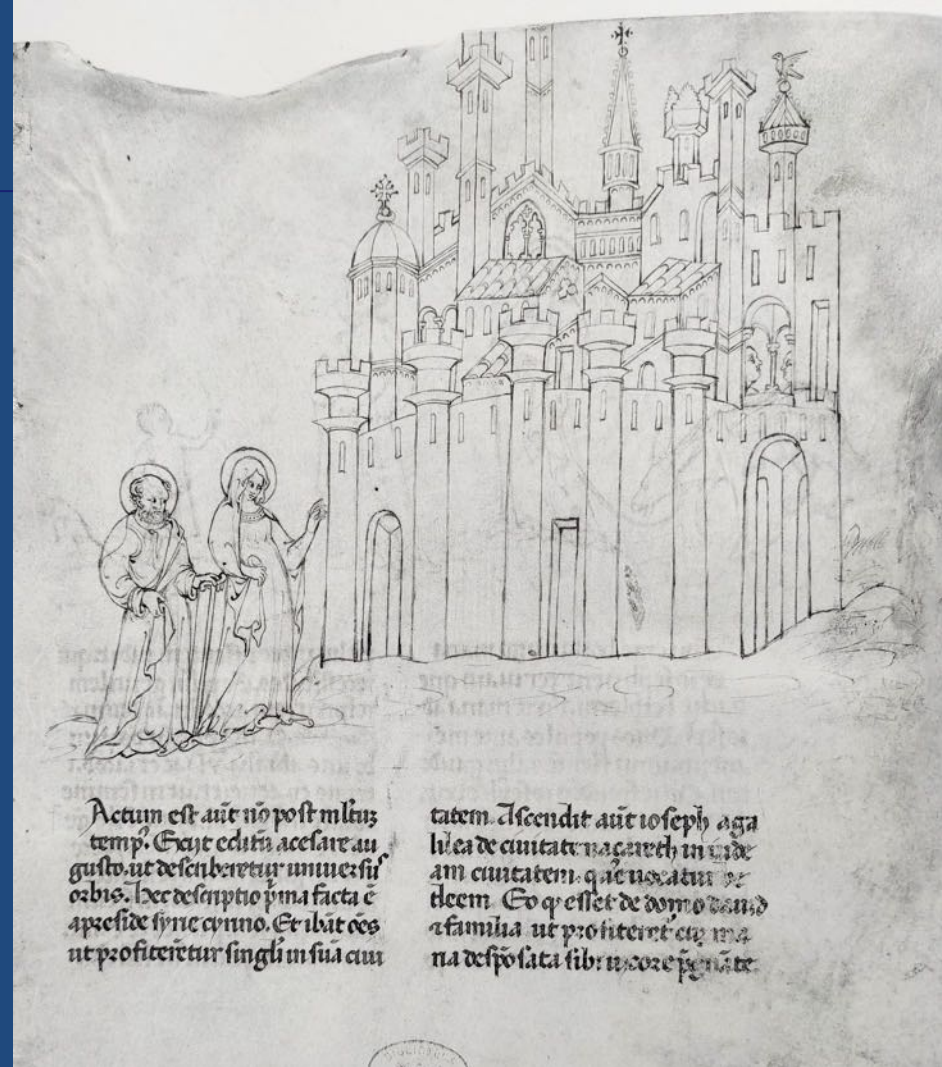 Actum est aūt nō post mltūz
temp᷒. Exyt editū acesare au
gusto. ut describeretur uniuersus
orbis. hec descriptio p̄ma facta ē
apreside syrie cyrino. Et ibāt oēs
ut profiterētur singli in suā ciui
tatem. Ascendit aūt ioseph aga
lilea de ciuitate nazareth in iude
am ciuitatem. q̄ ūocatur
tleem. Eo q esset de domo dauid
⁊ familia ut profiteret̄ cuz ma
ria despōsata sibi uxore p̄gnāte